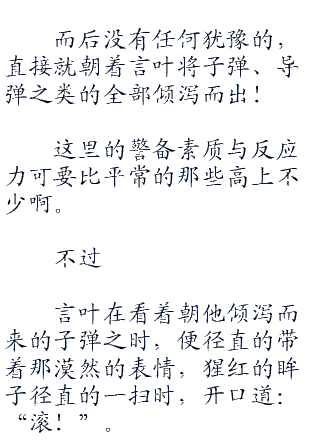 而后没有任何犹豫的，
直接就朝着言叶将子弹、导
弹之类的全部倾泻而出！
这里的警备素质与反应
力可要比平常的那些高上不
少啊。
不过
言叶在看着朝他倾泻而
来的子弹之时，便径直的带
着那漠然的表情，猩红的眸
子径直的一扫时，开口道：
“滚！”。